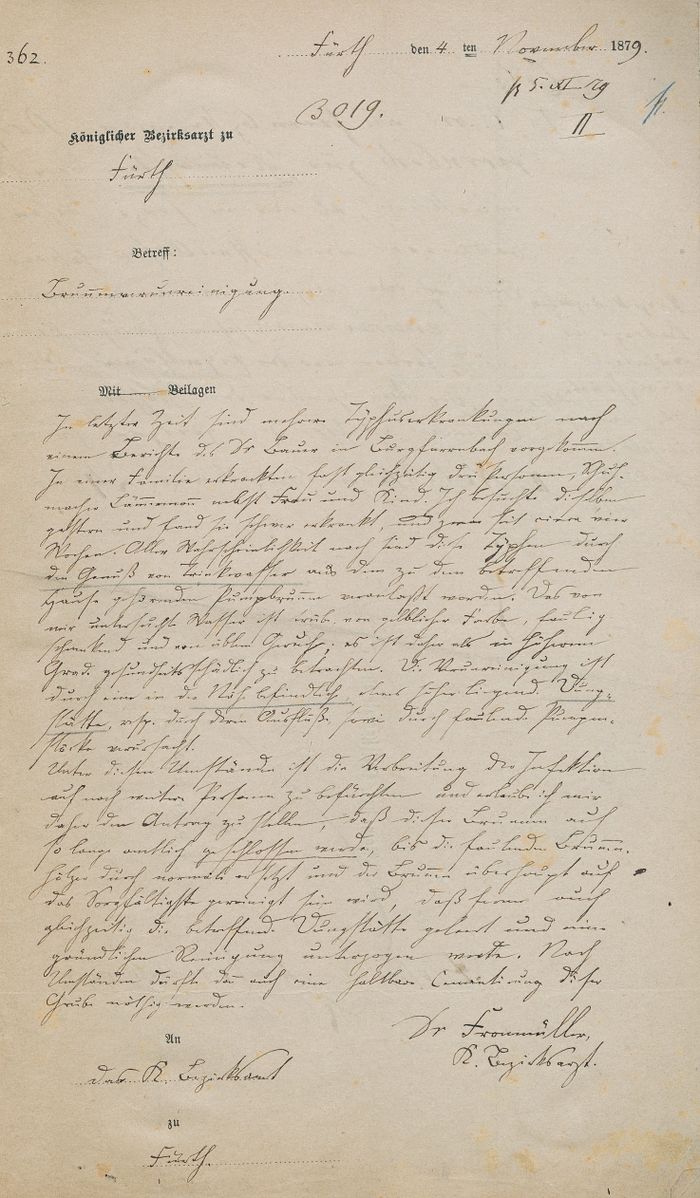 362.
Fürth den 4 ten November 1879.
5. XI. 79
3019.
II
Königlicher Bezirksarzt zu
Fürth
Betreff:
Brunnenverunreinigung.
Mit Beilagen
In letzter Zeit sind mehrere Typhuserkrankungen nach
einem Berichte des Dr Bauer in Burgfarrnbach vorgekommen.
In einer Familie erkrankten fast gleichzeitig drei Personen, Schuh-
macher nebst Frau und Kind. Ich besuchte dieselben
gestern und fand sie schwer erkrankt, und zwar seit vier
Wochen. Aller Wahrscheinlichkeit nach sind diese Typhen durch
den Genuß von Trinkwasser aus dem zu dem betreffenden
Hause gehörenden Pumpbrunnen veranlaßt worden. Das von
mir untersuchte Wasser ist trüb, von gelblicher Farbe, faulig
schmeckend und von üblem Geruch; es ist daher als in höherem
Grad gesundheitsschädlich zu betrachten. Die Verunreinigung ist
durch eine in der Nähe befindliche, etwas höher liegende Dung-
stätte, resp. durch deren Ausfluß, sowie durch faulende Pumpen-
stöcke verursacht.
Unter diesen Umständen ist die Verbreitung der Infektion
auf noch weitere Personen zu befürchten und erlaube ich mir
daher den Antrag zu stellen, daß dieser Brunnen auch
so lange amtlich geschlossen werde, bis die faulenden Brunnen-
hölzer durch normale ersetzt und der Brunnen überhaupt auf
das Sorgfältigste gereinigt sein wird, daß ferner auch
gleichzeitig die betreffende Dungstätte geleert und einer
gründlichen Reinigung unterzogen werde. Nach
Umständen dürfte dann auch eine haltbare Cementirung dieser
Grube nöthig werden.
An
Dr Fronmüller,
K. Bezirksarzt.
das K. Bezirksamt
zu
Fürth.